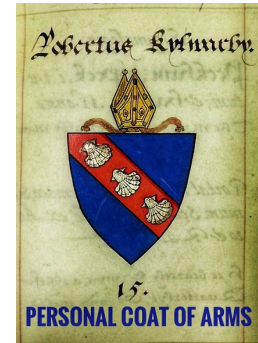 Robertus Kylwarby.
15.
PERSONAL COAT OF ARMS